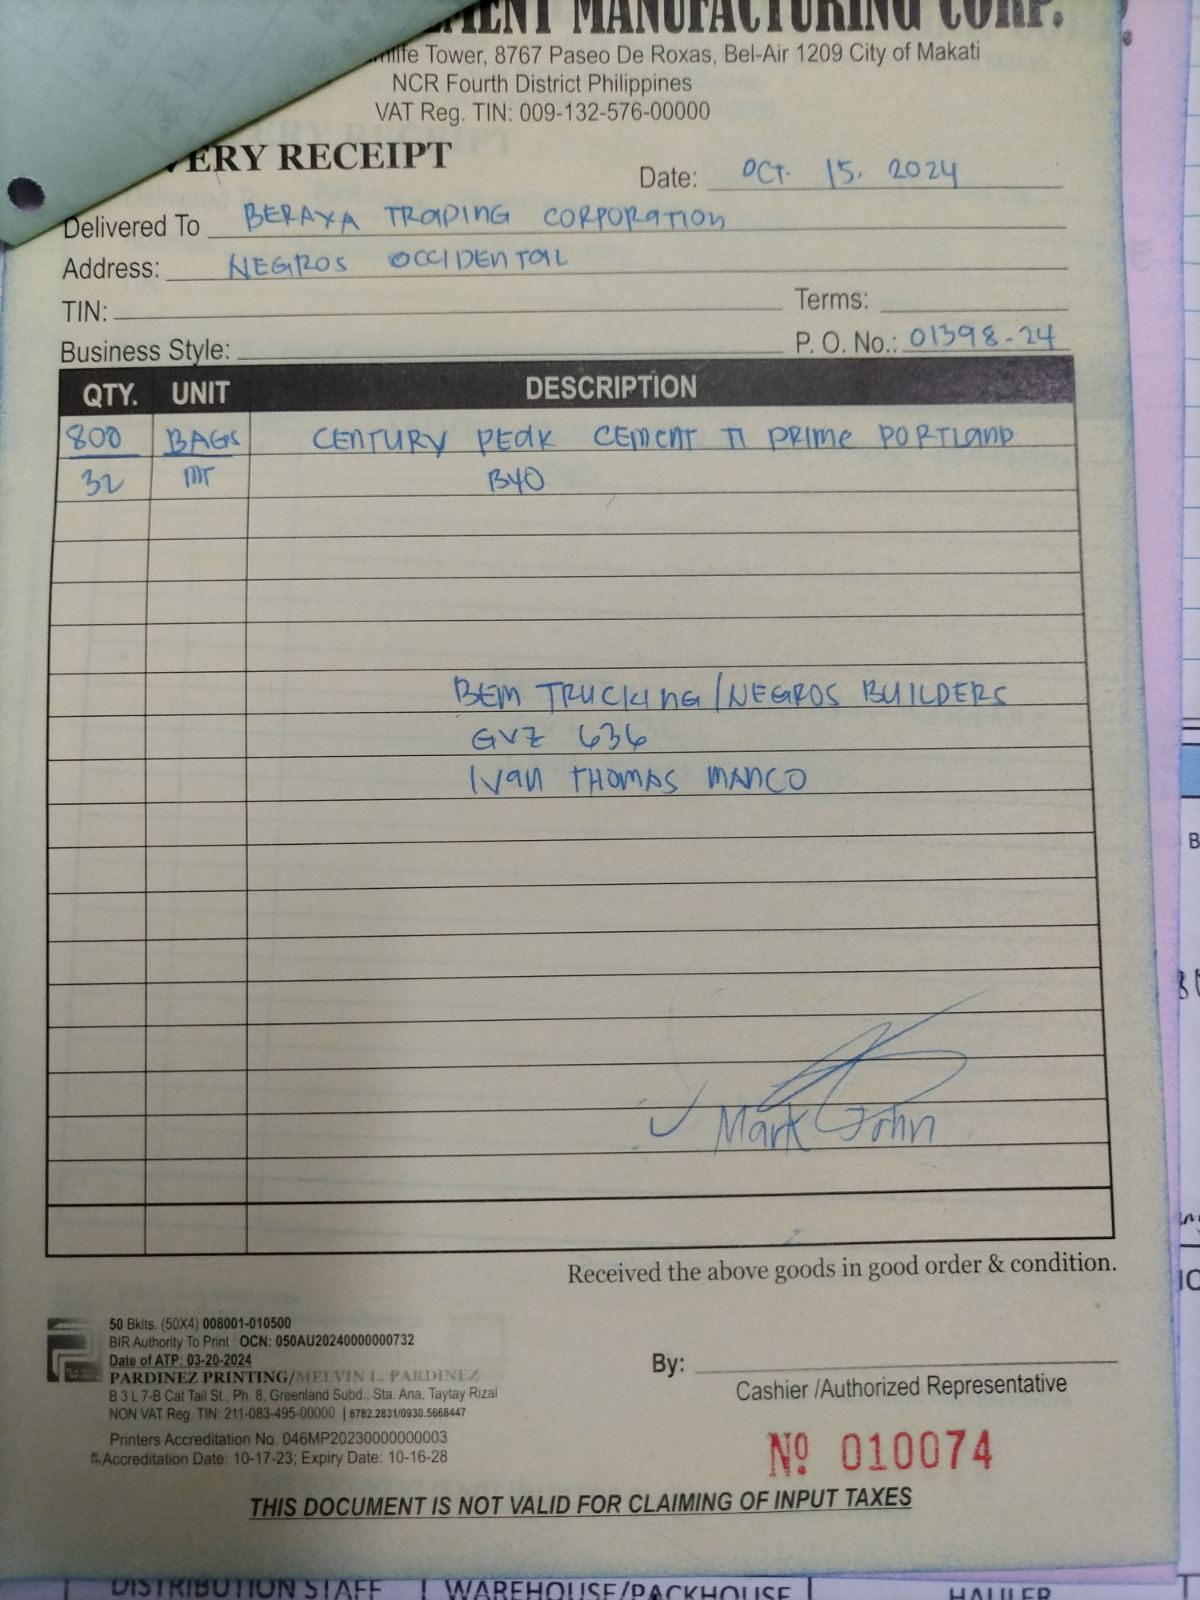 MENT MANUFACTURING CORP.
Tower, 8767 Paseo De Roxas, Bel-Air 1209 City of Makati
NCR Fourth District Philippines
VAT Reg. TIN: 009-132-576-00000
VERY RECEIPT
Date: OCT. 15. 2024
Delivered To BERAYA TRADING CORPORATION
Address: NEGROS OCCIDENTAL
TIN: Terms:
Business Style: P. O. No.: 01398-24
QTY. UNIT DESCRIPTION
800 BAGS CENTURY PEAK CEMENT T1 PRIME PORTLAND
32 MT B40
BEM TRUCKING/NEGROS BUILDERS
GVZ 636
IVAN THOMAS MANCO
Mark John
Received the above goods in good order & condition.
50 Bklts. (50X4) 008001-010500
BIR Authority To Print : OCN: 050AU20240000000732
Date of ATP: 03-20-2024
PARDINEZ PRINTING/MELVIN L. PARDINEZ
B 3 L 7-B Cat Tail St., Ph. 8, Greenland Subd., Sta. Ana, Taytay Rizal
NON VAT Reg. TIN: 211-083-495-00000 | 8782.2831/0930.5668447
Printers Accreditation No. 046MP20230000000003
Accreditation Date: 10-17-23; Expiry Date: 10-16-28
By:
Cashier /Authorized Representative
Nº 010074
THIS DOCUMENT IS NOT VALID FOR CLAIMING OF INPUT TAXES
DISTRIBUTION STAFF WAREHOUSE/PACKHOUSE HAULER